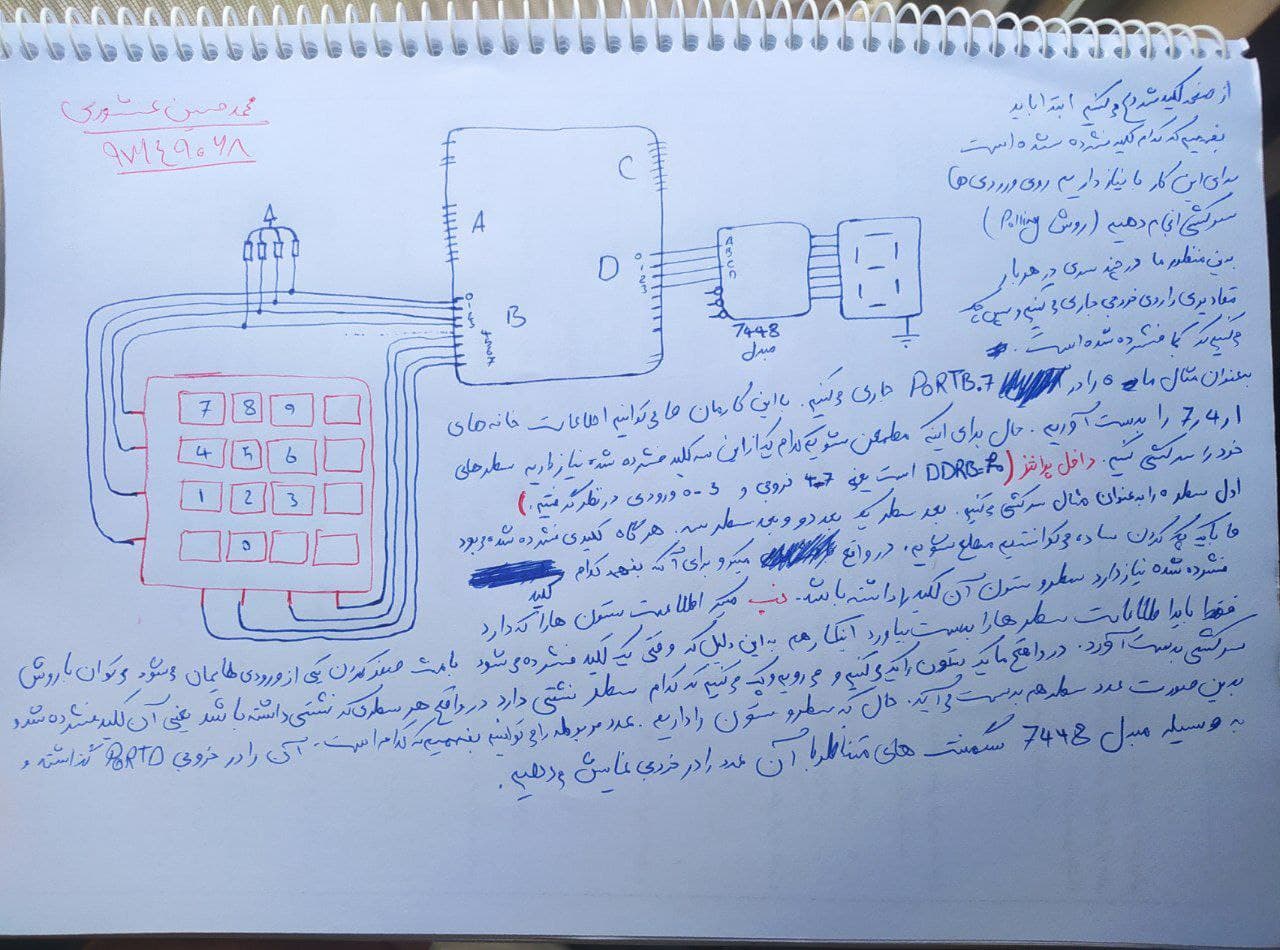 محمدحسین عشوری
۹۷۱۴۹۰۶۸
از صفحه کلید شروع می‌کنیم ابتدا باید
بفهمیم که کدام کلید فشرده شده است
برای این کار ما نیاز داریم روی ورودی ها
سرکشی انجام دهیم (روش Polling)
بدین منظور ما در چند سری در هر بار
مقادیری را روی خروجی جاری می‌کنیم و سپس چک
می‌کنیم که کجا فشرده شده است.
بعنوان مثال ما 0 را در PORTB.7 جاری می‌کنیم. با این کارمان ما می‌توانیم اطلاعات خانه های
1 و 4 و 7 را بدست آوریم. حال برای اینکه مطمئن شویم کدام یک از این سه کلید فشرده شده نیاز داریم سطرهای
خود را سرکشی کنیم. داخل پرانتز (DDRB=F0 است یعنی 4-7 خروجی و 0-3 ورودی در نظر گرفتیم.)
اول سطر 0 را بعنوان مثال سرکشی می‌کنیم. بعد سطر یک بعد دو و بعد سطر سه. هرگاه کلیدی فشرده شده بود
ما با یک چک کردن ساده می‌توانستیم مطلع شویم. در واقع میکرو برای آنکه بفهمد کدام کلید
فشرده شده نیاز دارد سطر و ستون آن کلید را داشته باشد. خب میکرو اطلاعات ستون ها را که دارد
فقط باید اطلاعات سطرها را بدست بیاورد اینکار هم به این دلیل که وقتی یک کلید فشرده می‌شود باعث صفر کردن یکی از ورودی هایمان می‌شود می‌توان با روش
سرکشی بدست آورد. در واقع ما یک ستون را یک می‌کنیم و می‌رویم و چک می‌کنیم که کدام سطر نشتی دارد در واقع هر سطری که نشتی داشته باشد یعنی آن کلید فشرده شده و
بدین صورت عدد سطر هم بدست می‌آید. حال که سطر و ستون را داریم. عدد مربوطه را می‌توانیم بفهمیم که کدام است. آن را در خروجی PORTD گذاشته و
به وسیله مبدل 7448 سگمنت های متناظر با آن عدد را در خروجی نمایش می‌دهیم.
A
B
C
D
0
1
2
3
4
5
6
7
0
1
2
3
A
B
C
D
7448
مبدل
7 8 9
4 5 6
1 2 3
0